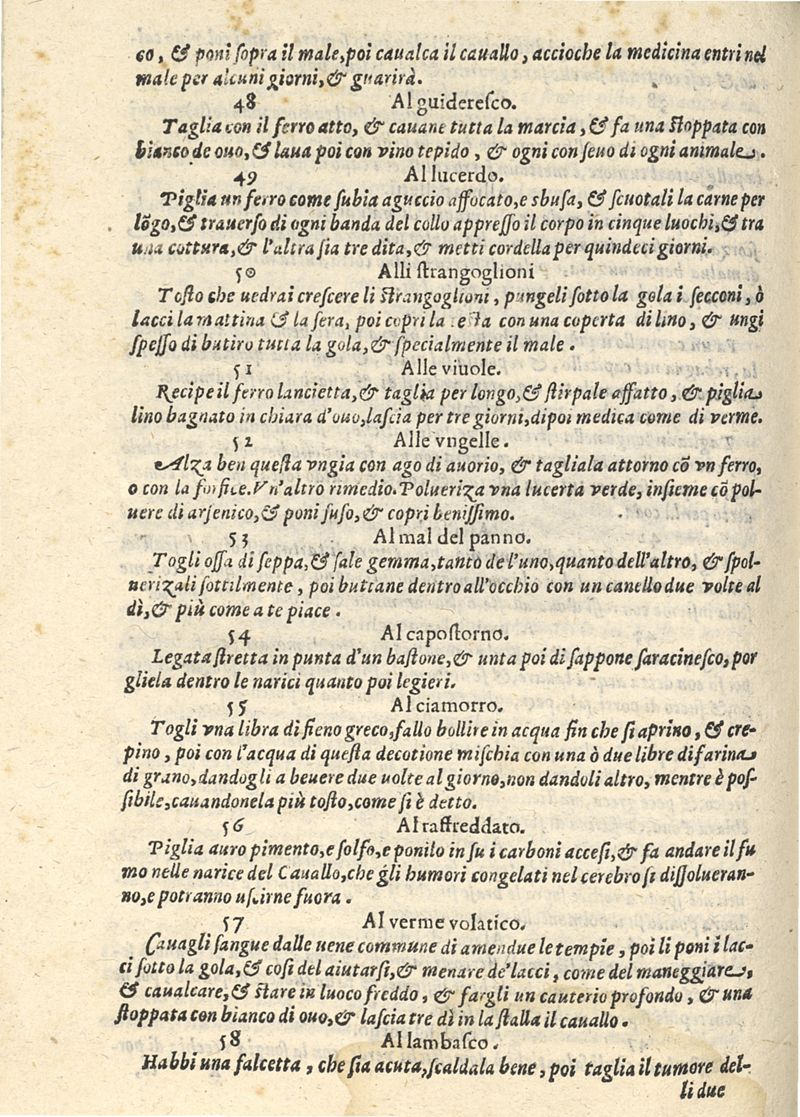 co, & poni ſopra il male, poi caualca il cauallo, accioche la medicina entri nel
male per alcuni giorni, & guarirà.
48 Al guidereſco.
Taglia con il ferro atto, & cauane tutta la marcia, & fa una ſtoppata con
bianco de ouo, & laua poi con vino tepido, & ogni con ſeuo di ogni animale.
49 Al lucerdo.
Piglia un ferro come ſubia aguccio affocato, e sbuſa, & ſcuotali la carne per
lõgo, & trauerſo di ogni banda del collo appreſſo il corpo in cinque luochi, & tra
una cottura, & l'altra ſia tre dita, & metti cordella per quindeci giorni.
50 Alli ſtrangoglioni
Toſto che uedrai creſcere li ſtrangoglioni, pungeli ſotto la gola i ſecconi, ò
lacci la mattina & la ſera, poi copri la teſta con una coperta di lino, & ungi
ſpeſſo di butiro tutta la gola, & ſpecialmente il male.
51 Alle viuole.
Recipe il ferro lancietta, & taglia per longo, & ſtirpale affatto, & piglia
lino bagnato in chiara d'ouo, laſcia per tre giorni, dipoi medica come di verme.
52 Alle vngelle.
Alza ben queſta vngia con ago di auorio, & tagliala attorno cõ vn ferro,
o con la forfice. Vn'altro rimedio. Polueriza vna lucerta verde, inſieme cõ pol-
uere di arſenico, & poni ſuſo, & copri beniſſimo.
53 Al mal del panno.
Togli oſſa di ſeppa, & ſale gemma, tanto de l'uno, quanto dell'altro, & ſpol-
uerizali ſottilmente, poi buttane dentro all'occhio con un canello due volte al
dì, & più come a te piace.
54 Al capoſtorno.
Legata ſtretta in punta d'un baſtone, & unta poi di ſappone ſaracineſco, por
gliela dentro le narici quanto poi legieri.
55 Al ciamorro.
Togli vna libra di fieno greco, fallo bollire in acqua fin che ſi aprino, & cre-
pino, poi con l'acqua di queſta decotione miſchia con una ò due libre di farina
di grano, dandogli a beuere due uolte al giorno, non dandoli altro, mentre è poſ-
ſibile, cauandonela più toſto, come ſi è detto.
56 Al raffreddato.
Piglia auro pimento, e ſolfo, e ponilo in ſu i carboni acceſi, & fa andare il fu
mo nelle narice del Cauallo, che gli humori congelati nel cerebro ſi diſſolueran-
no, e potranno uſcirne fuora.
57 Al verme volatico.
Cauagli ſangue dalle uene commune di amendue le tempie, poi li poni i lac-
ci ſotto la gola, & coſi del aiutarſi, & menare de'lacci, come del maneggiare,
& caualcare, & ſtare in luoco freddo, & fargli un cauterio profondo, & una
ſtoppata con bianco di ouo, & laſcia tre dì in la ſtalla il cauallo.
58 Al lambaſco.
Habbi una falcetta, che ſia acuta, ſcaldala bene, poi taglia il tumore del-
li due